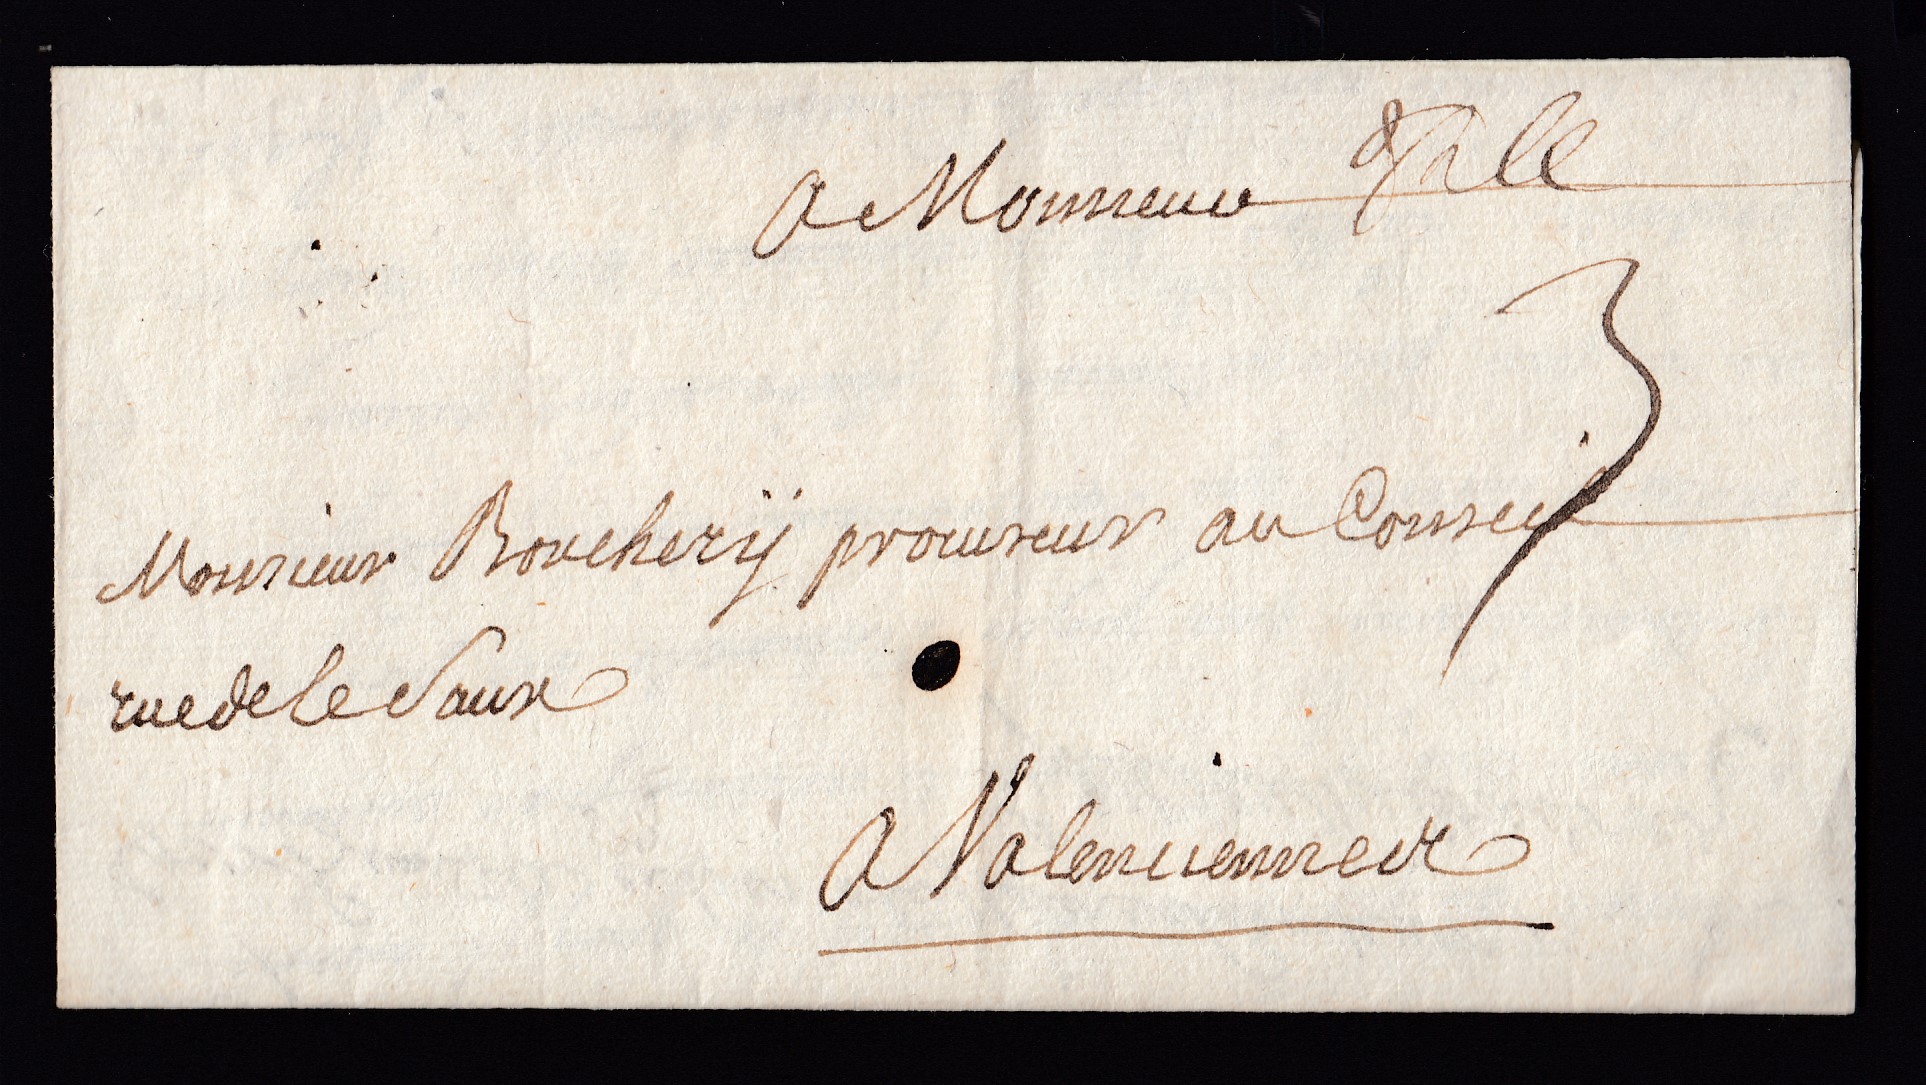 A Monsieur
3
Monsieur Boucherÿ procureur au Conseil
rue de le Saux
A Valenciennes